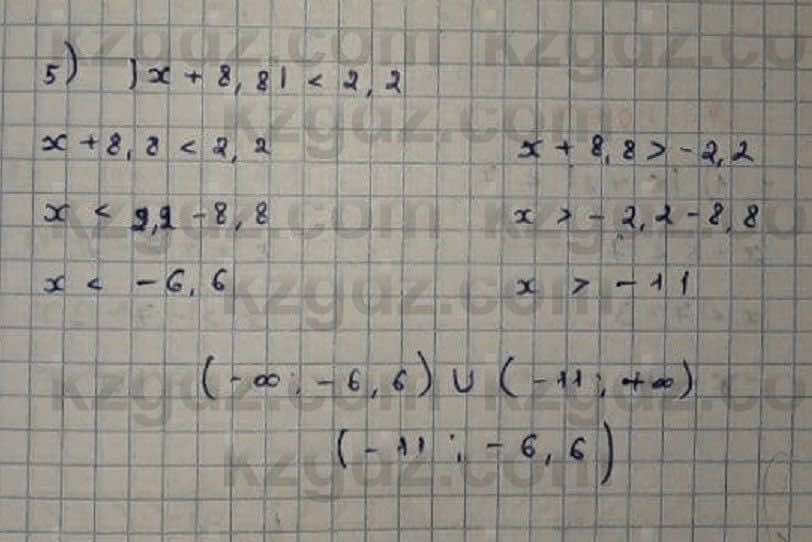 5) |x + 8,8| < 2,2
x + 8,8 < 2,2 x + 8,8 > -2,2
x < 2,2 - 8,8 x > - 2,2 - 8,8
x < -6,6 x > -11
(-∞; -6,6) ∪ (-11; +∞)
(-11; -6,6)
kzgdz.com